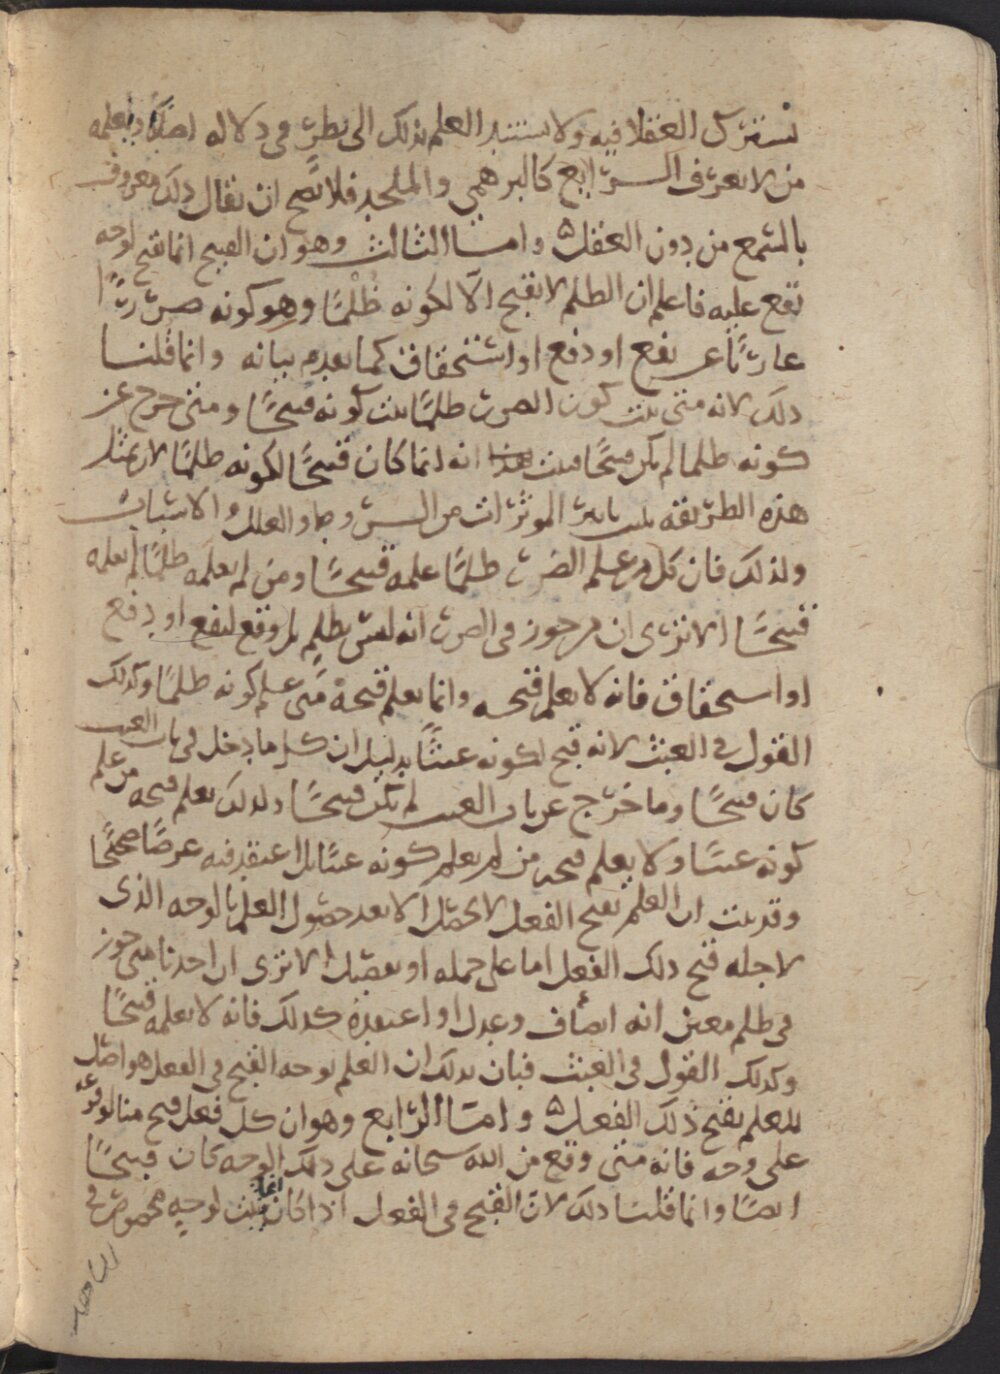 يشترك العقلا فيه ولا يستند العلم بذلك الى نظر في دلاله اصلا ويعلمه
من لا يعرف الشرايع كالبرهمي والملحد فلا يصح ان يقال ذلك معروف
بالسمع من دون العقل ٥ وامـا الثالث وهو ان القبيح انما يقبح لوجه
يقع عليه فاعلم ان الظلم لا يقبح الّا لكونه ظُلْمًا وهو كونه ضررًا
عاريًا عن نفع او دفع او استحقاق كما تقدم بيانه وانما قلنـا
ذلك لانه متى ثبت كون الضرر ظلمًا ثبت كونه قبيحًا ومتى خرج عن
كونه ظلما لم يكن قبيحًا فثبت بهذا انه انما كان قبيحًا لكونه ظلمًا لان بمثل
هذه الطريقه تثبت تاثير الموثرات من الشروط والعلل والاسباب
ولذلك فان كل من علم الضرر ظلمًا علمه قبيحًا ومن لم يعلمه ظلمًا لم يعلمه
قبيحًا الا ترى ان من جوز في الضرر انه ليس بظلم بل وقع لنفع او دفع
او استحقاق فانه لا يعلم قبحه وانما يعلم قبحهُ متى علم كونه ظلمًا وكذلك
القول في العبث لانه قبح لكونه عبثًا بدليل ان كل ما دخل في باب العبث
كان قبيحًا وما خرج عن باب العبث لم يكن قبيحًا ولذلك يعلم قبحه من علم
كونه عبثا ولا يعلم قبحه من لم يعلم كونه عبثا بل اعتقد فيه غرضًا صحيحًا
وقد ثبت ان العلم بقبح الفعل لا يحصل الا بعد حصول العلم بالوجه الذى
لاجله قبح ذلك الفعل اما على جمله او تفصيل الا ترى ان احدنا متى جوز
في ظلم معين انه انصاف وعدل او اعتقده كذلك فانه لا يعلمه قبيحًا
وكذلك القول في العبث فبان بذلك ان العلم بوجه القبح في الفعل هو اصل
للعلم بقبح ذلك الفعل ٥ وامـا الرابع وهو ان كل فعل قبح منا لوقوعه
على وجه فانه متى وقع من الله سبحانه على ذلك الوجه كان قبيحًا
ايضًا وانما قلنـا ذلك لان القبح في الفعل اذا كان انما يثبت لوجه مخصوص في